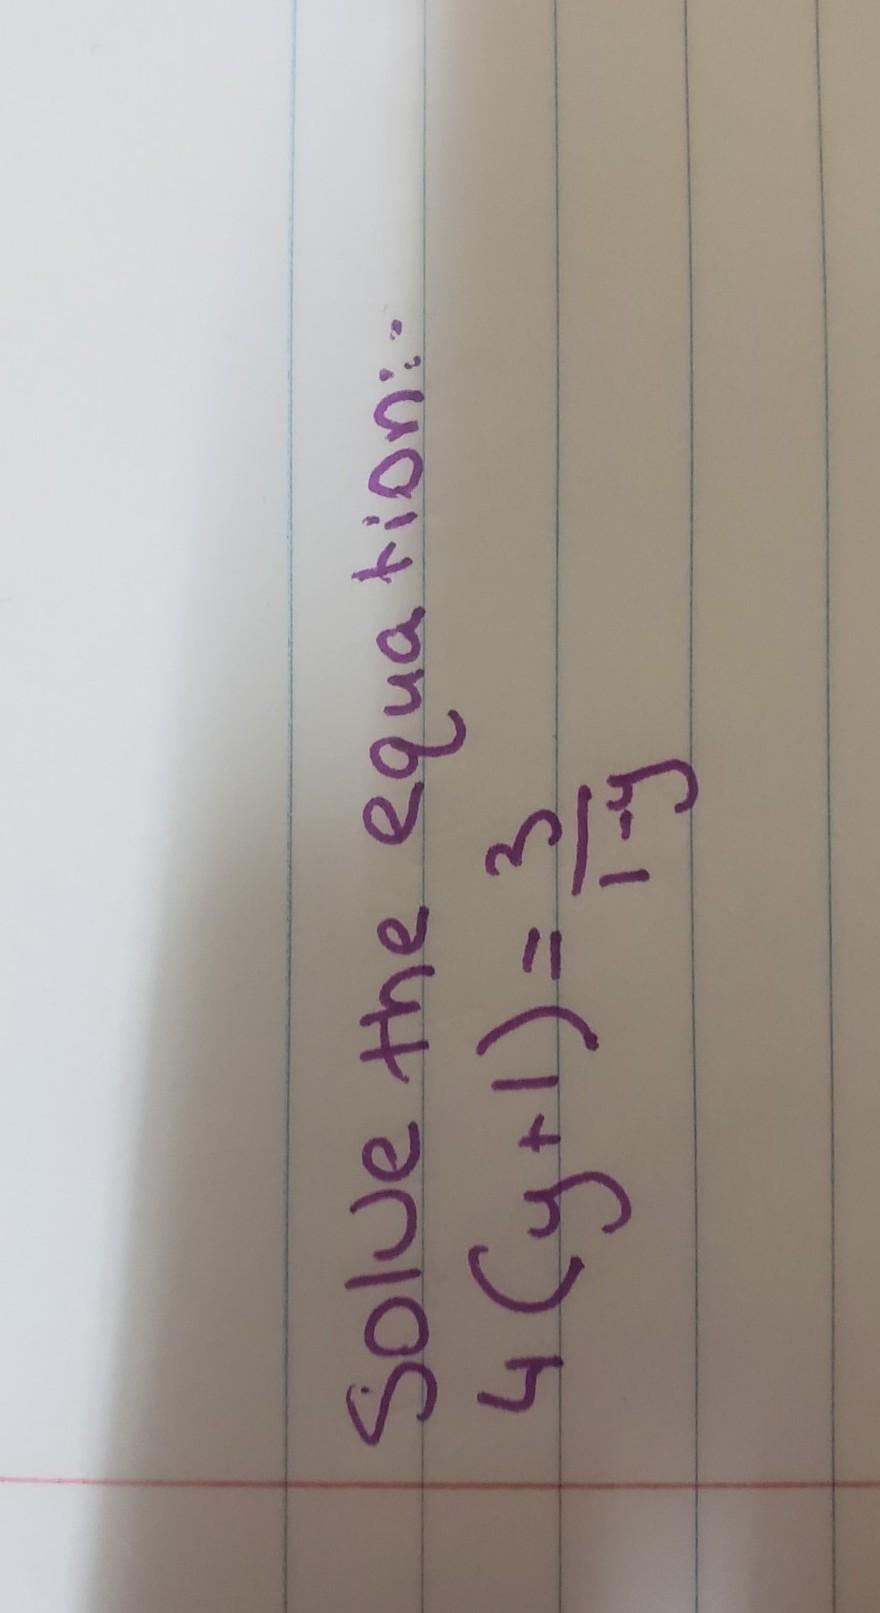 Solve the equation:-
4(y+1) = 3/1-y